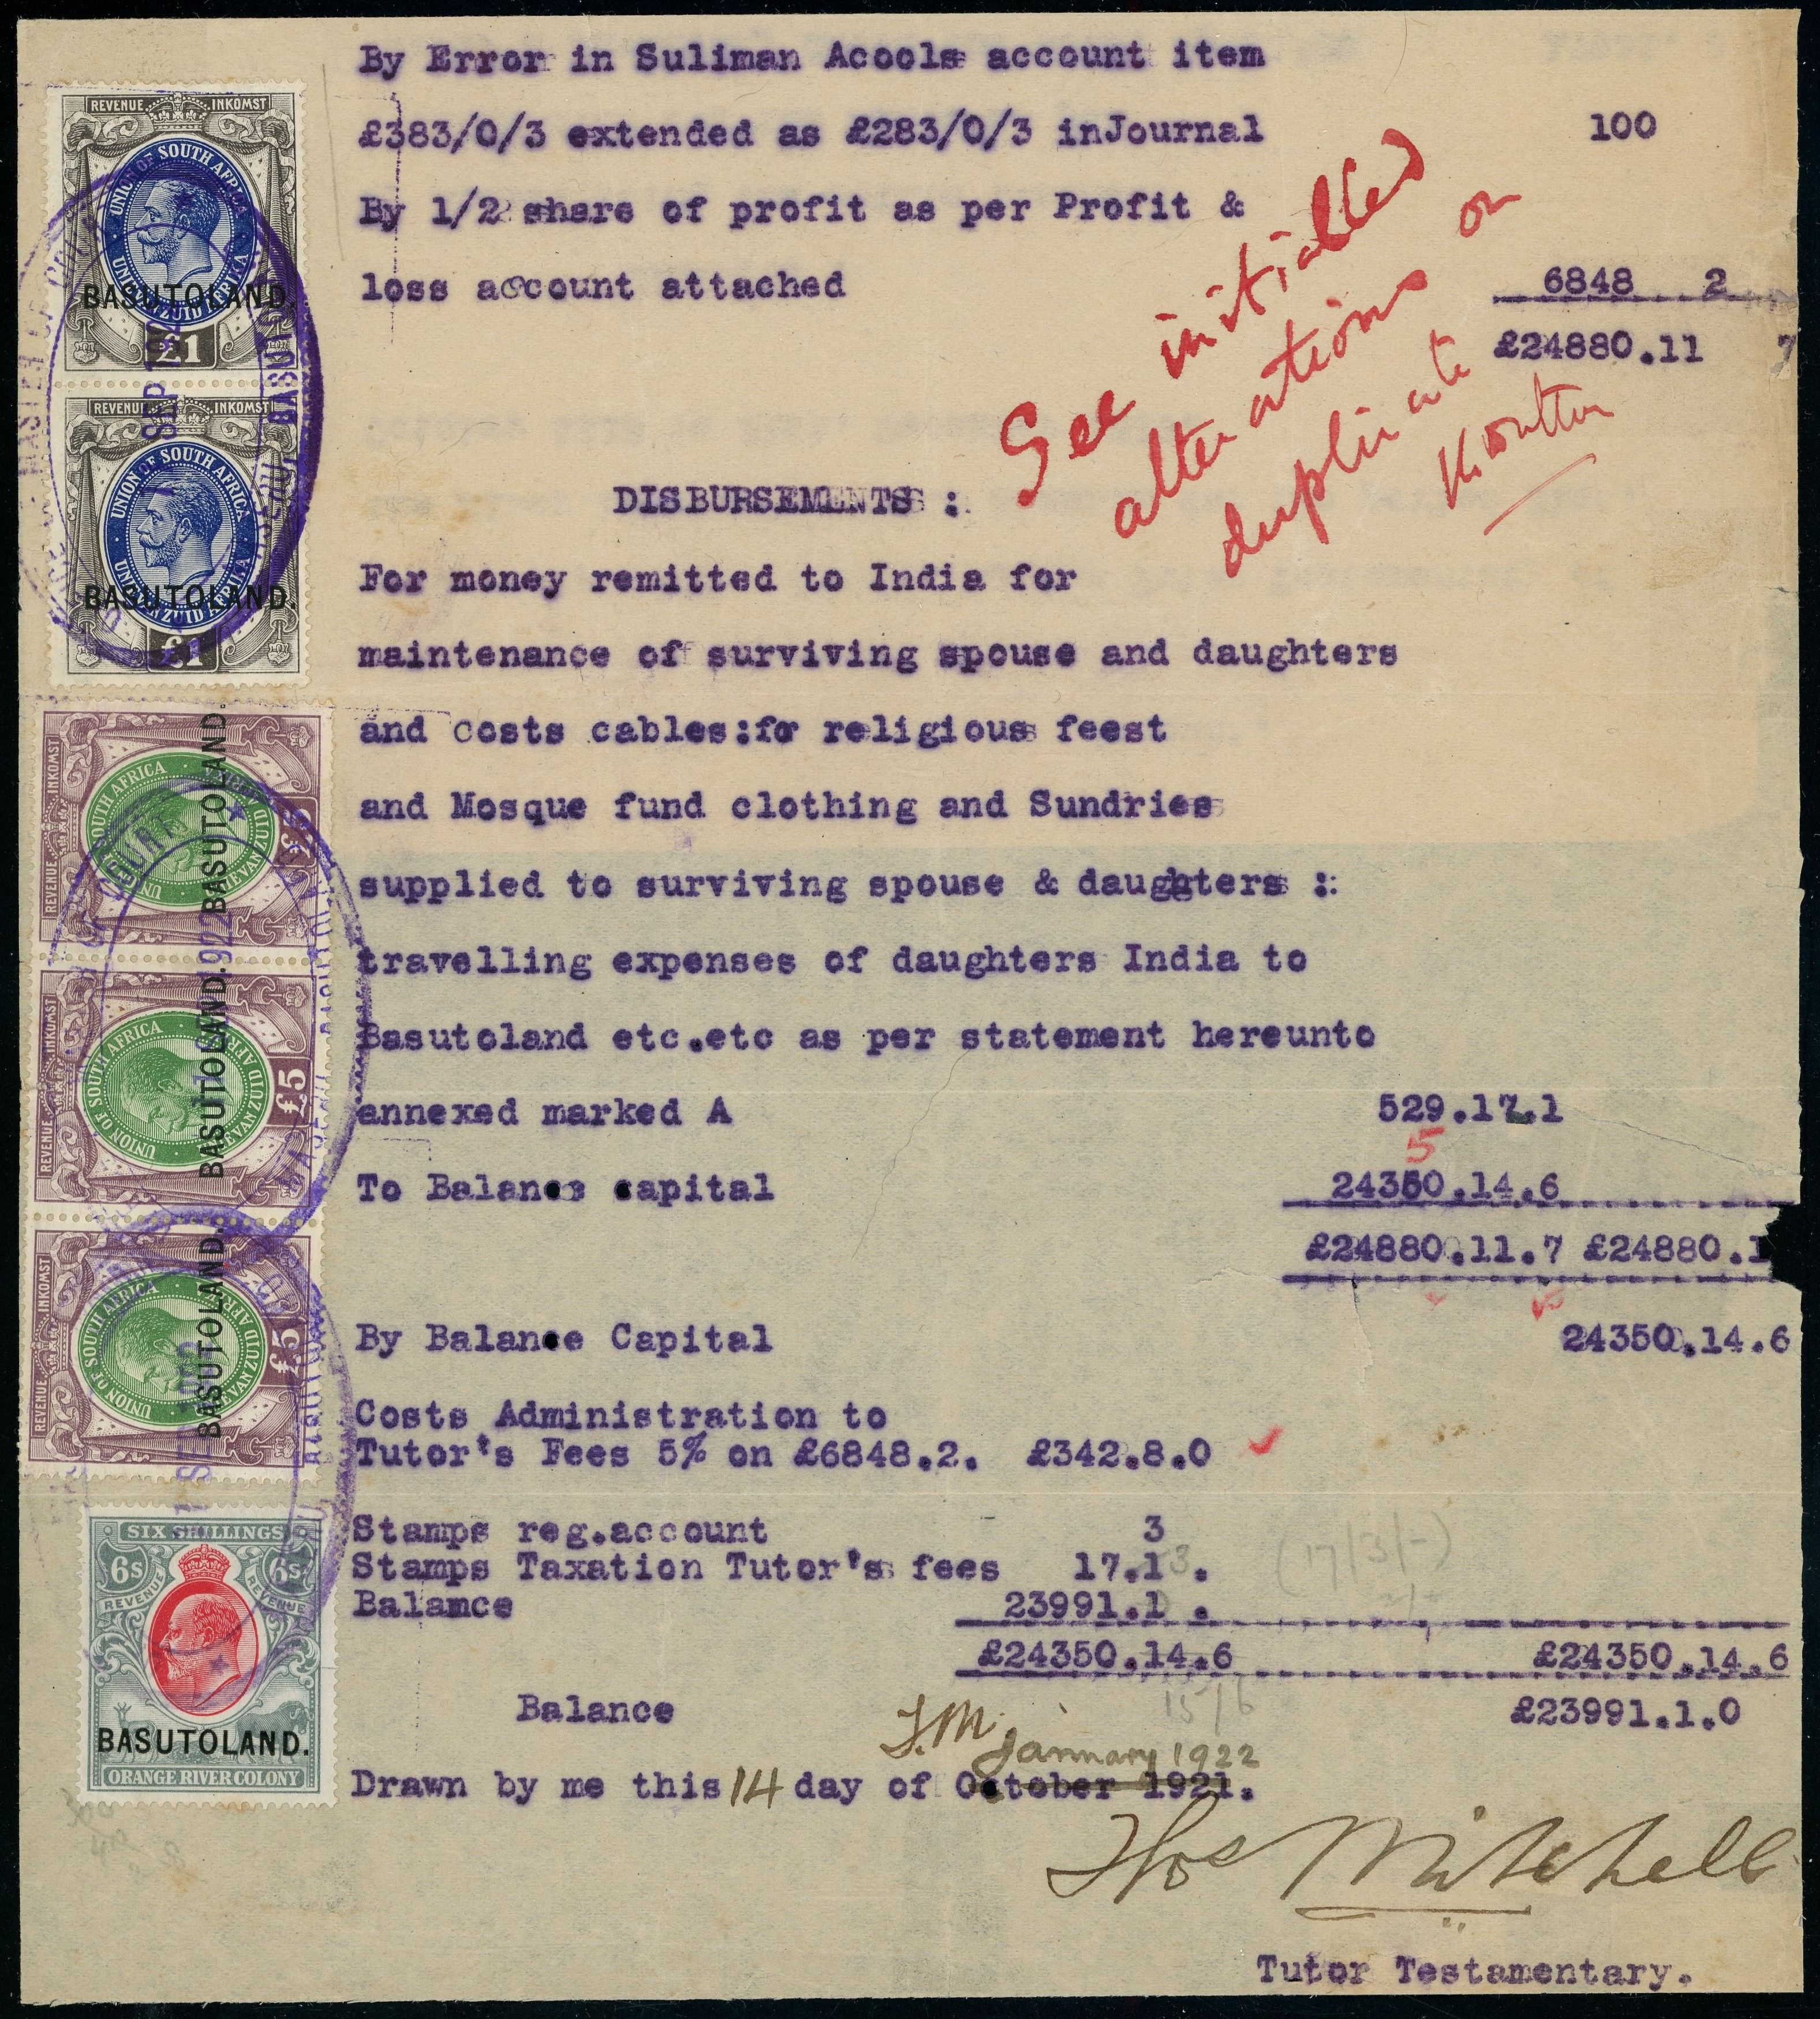 By Error in Suliman Acools account item
£383/0/3 extended as £283/0/3 inJournal 100
By 1/2 share of profit as per Profit &
loss account attached 6848 2
£24880.11 7
See initialled
alterations on
duplicate
DISBURSEMENTS :
For money remitted to India for
maintenance of surviving spouse and daughters
and costs cables:for religious feest
and Mosque fund clothing and Sundries
supplied to surviving spouse & daughters :
travelling expenses of daughters India to
Basutoland etc.etc as per statement hereunto
annexed marked A 529.17.1
5
To Balance capital 24350.14.6
£24880.11.7 £24880.1
By Balance Capital 24350.14.6
Costs Administration to
Tutor's Fees 5% on £6848.2. £342.8.0
Stamps reg.account 3
Stamps Taxation Tutor's fees 17.13. (17/3/-)
Balance 23991.1 .
£24350.14.6 £24350.14.6
15/6
Balance £23991.1.0
J.M. january 1922
Drawn by me this 14 day of October 1921.
Thos Mitchell
Tutor Testamentary.
REVENUE INKOMST
UNION OF SOUTH AFRICA
UNIE VAN ZUID AFRIKA
BASUTOLAND.
£1
REVENUE INKOMST
UNION OF SOUTH AFRICA
UNIE VAN ZUID AFRIKA
BASUTOLAND.
£1
REVENUE INKOMST
UNION OF SOUTH AFRICA
UNIE VAN ZUID AFRIKA
BASUTOLAND.
£5
REVENUE INKOMST
UNION OF SOUTH AFRICA
UNIE VAN ZUID AFRIKA
BASUTOLAND.
£5
REVENUE INKOMST
UNION OF SOUTH AFRICA
UNIE VAN ZUID AFRIKA
BASUTOLAND.
£5
SIX SHILLINGS
6s 6s
REVENUE REVENUE
BASUTOLAND.
ORANGE RIVER COLONY